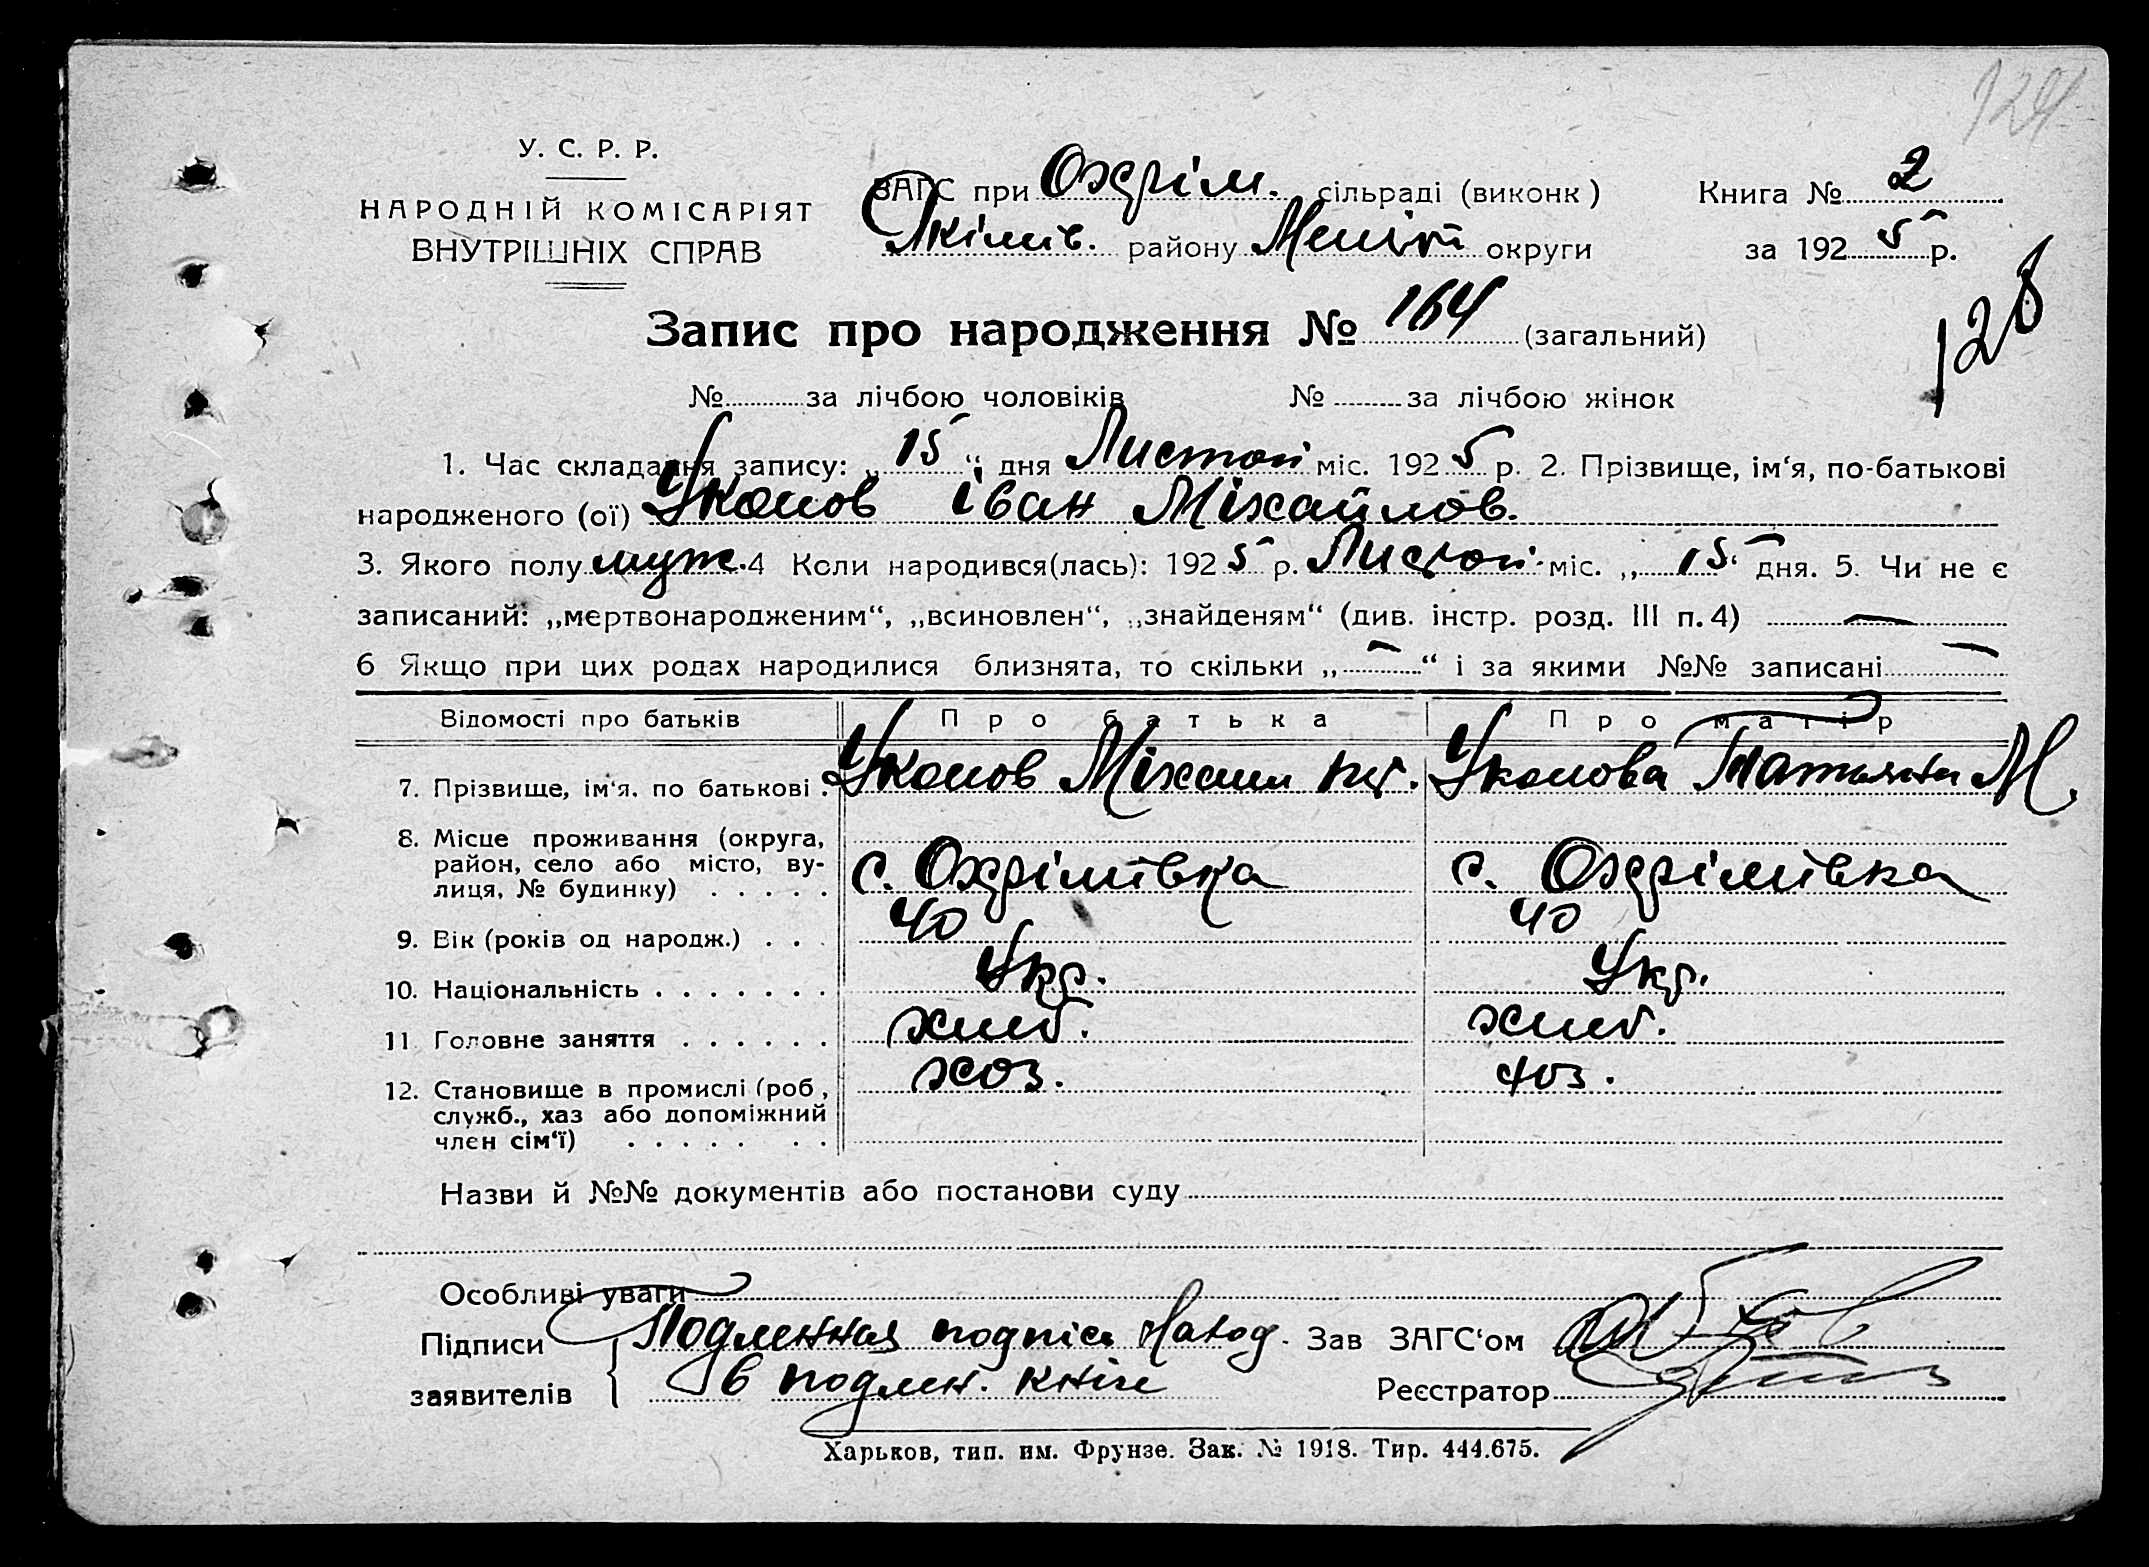 124
У. С. Р. Р.
НАРОДНІЙ КОМІСАРІЯТ
ВНУТРІШНІХ СПРАВ
ЗАГС при Охрім. сільраді (виконк)
Якімів. району Меліт округи
Книга № 2
за 1925 р.
128
Запис про народження № 164 (загальний)
№ за лічбою чоловіків № за лічбою жінок
1. Час складання запису: „15“ дня Листоп міс. 1925 р. 2. Прізвище, ім‘я, по-батькові
народженого (ої) Уколов Іван Міхайлов.
3. Якого полу муж. 4 Коли народився(лась): 1925 р. Листоп. міс. „15“ дня. 5. Чи не є
записаний: „мертвонародженим“, „всиновлен“, „знайденям“ (див. інстр. розд. III п. 4) —
6 Якщо при цих родах народилися близнята, то скільки „—“ і за якими №№ записані —
Відомості про батьків Про батька Про матір
7. Прізвище, ім‘я. по батькові . Уколов Міхаил Уколова Татьяна М.
8. Місце проживання (округа,
район, село або місто, ву-
лиця, № будинку) . . . . . с. Охрімівка с. Охрімівка
9. Вік (років од народж.) . . . 40 40
10. Національність . . . . . . . Укр. Укр.
11 Головне заняття . . . . . . хліб. хліб.
12. Становище в промислі (роб, хоз. хоз.
служб., хаз або допоміжний
член сім‘ї) . . . . . . .
Назви й №№ документів або постанови суду
Особливі уваги
Підписи Подленная подпісь Наход. Зав ЗАГС‘ом
заявителів в подлен. кніге Реєстратор
Харьков, тип. им. Фрунзе. Зак. № 1918. Тир. 444.675.